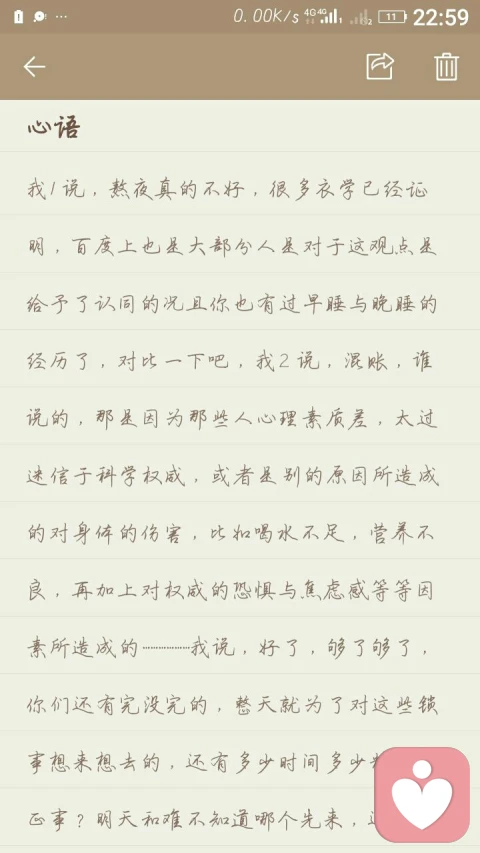 0.00K/s 4G 4G 1 2 11 22:59
心语
我1说，熬夜真的不好，很多衣学已经证
明，百度上也是大部分人是对于这观点是
给予了认同的况且你也有过早睡与晚睡的
经历了，对比一下吧，我2说，混账，谁
说的，那是因为那些人心理素质差，太过
迷信于科学权威，或者是别的原因所造成
的对身体的伤害，比如喝水不足，营养不
良，再加上对权威的恐惧与焦虑感等等因
素所造成的┈┈┈┈我说，好了，够了够了，
你们还有完没完的，整天就为了对这些锁
事想来想去的，还有多少时间多少
正事？明天和难不知道哪个先来，